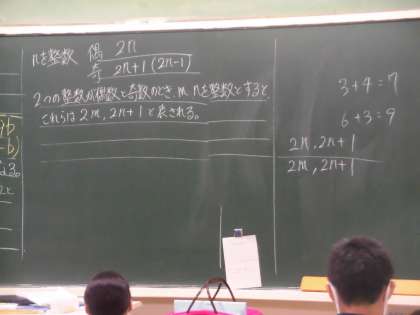 nを整数 偶 2n
奇 2n+1 (2n-1)
2つの整数が偶数と奇数のとき、m, nを整数とすると、
これらは2m, 2n+1と表される。
3+4=7
6+3=9
2n, 2n+1
2m, 2n+1